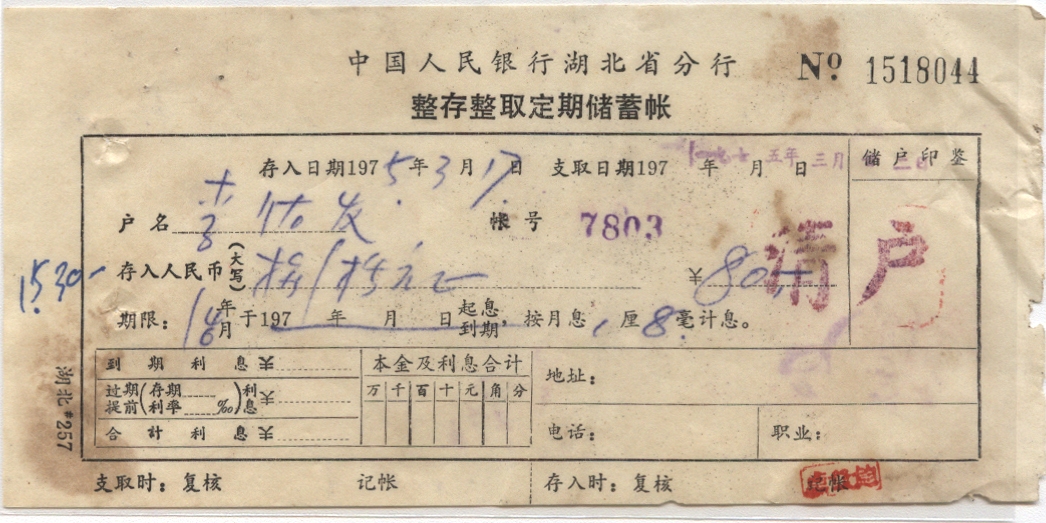 中国人民银行湖北省分行 Nº 1518044
整存整取定期储蓄帐
存入日期1975年3月17日 支取日期197 年 月 日 储户印鉴
五年三月
户名 帐号 7803
存入人民币(大写) ¥80
清户
1530-
期限: 年 月 于197 年 月 日 起息 到期 , 按月息 厘8毫计息。
到期利息¥ 本金及利息合计 地址:
过期 提前 (存期 利率 ‰) 利息 ¥ 万千百十元角分
合计利息¥ 电话: 职业:
湖北#257
支取时: 复核 记帐 存入时: 复核 帐